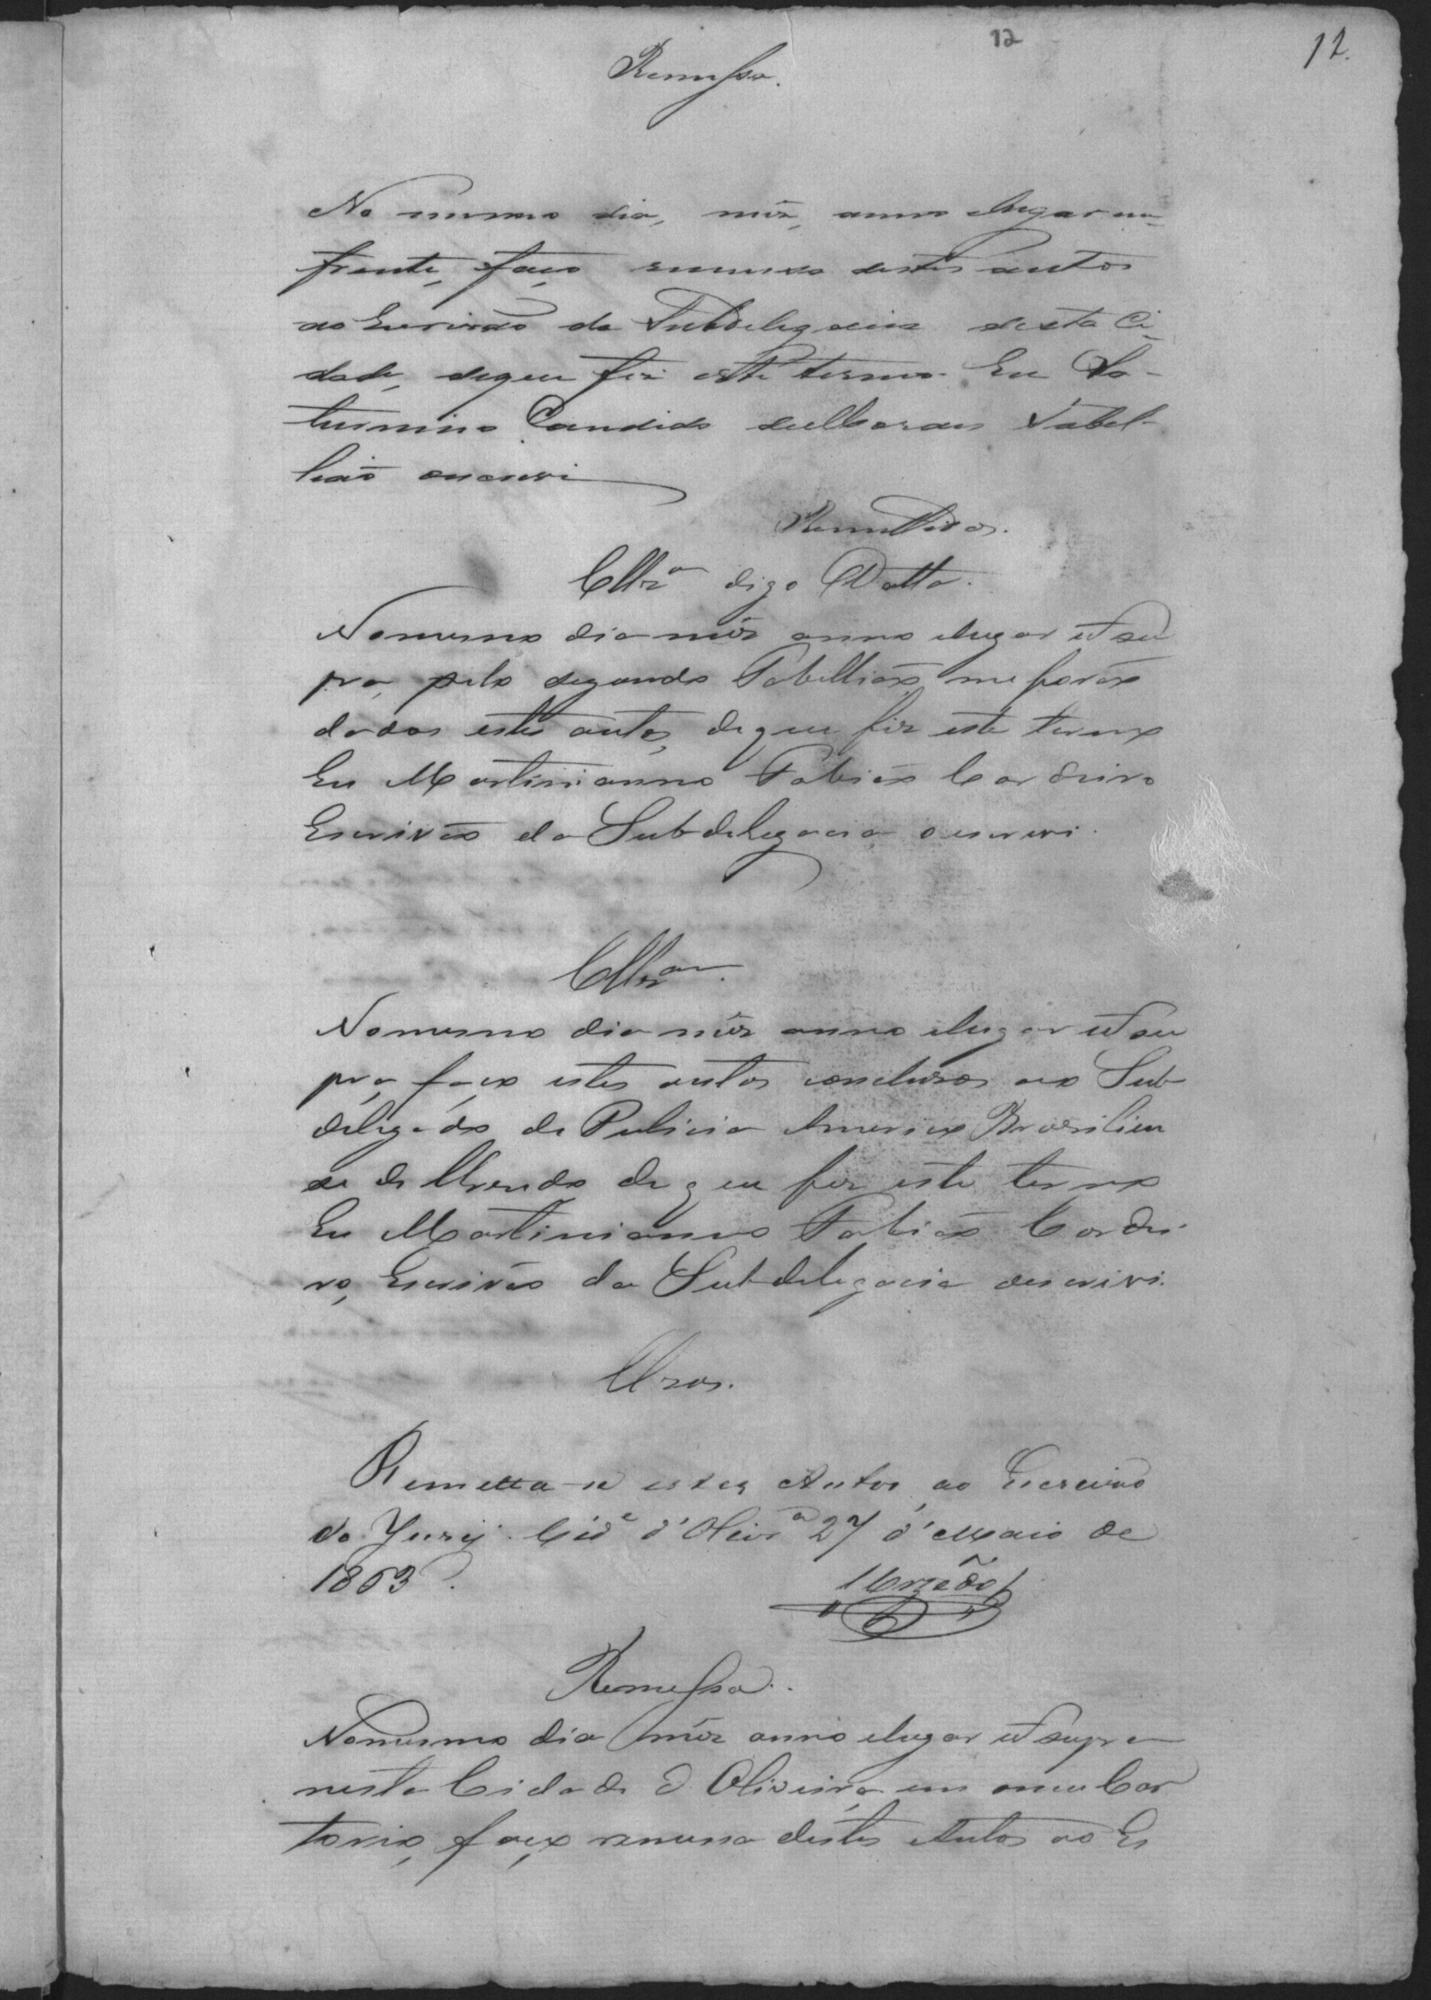 12
12.
Remessa.
No mesmo dia, mês, anno elugar em
frente, faço remessa destes autos
ao Escrivão da Subdelegacia desta Ci-
dade, deque fiz este termo. Eu Sa-
turnino Candido Tabel-
lião oescrevi
Remettidos.
Cllzam digo Datta.
Nomesmo dia mês anno elugar ut su
pra, pelo segundo Tabellião me forão
dados estes autos, de que fiz este termo
Eu Martinianno Tobias Cordeiro
Escrivão da Subdelegacia o escrevi.
Cllzam.
Nomesmo dia mês anno elugar ut su
pra, faço estes autos concluzos ao Sub-
delegado de Policia Americo Brasilien
se de que fiz este termo
Eu Martinianno Tobias Cordei
ro, Escrivão da Subdelegacia oescrivi.
Cllzos.
Remetta-se estes Autos ao Escrivão
do Jury. Cide d'Olivra 27 d'Maio de
1863.
Remessa.
Nomesmo dia mês anno elugar ut supra
nesta Cidade d'Oliveira, em omeu Car
torio, faço remessa destes Autos ao Es